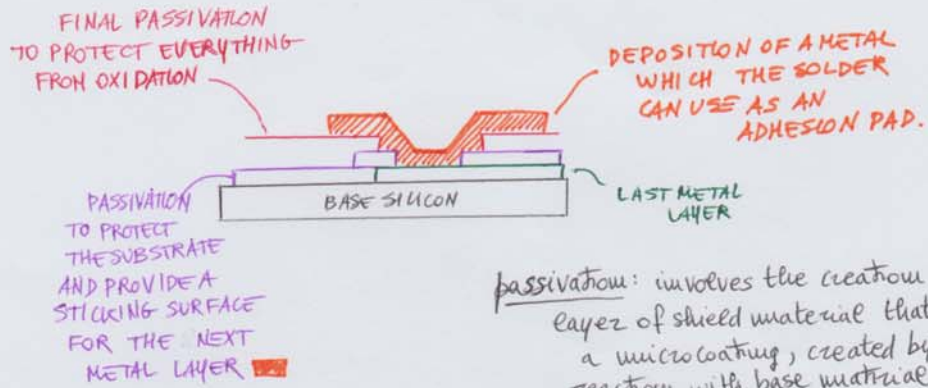 FINAL PASSIVATION
TO PROTECT EVERYTHING
FROM OXIDATION
DEPOSITION OF A METAL
WHICH THE SOLDER
CAN USE AS AN
ADHESION PAD.
BASE SILICON
LAST METAL
LAYER
PASSIVATION
TO PROTECT
THE SUBSTRATE
AND PROVIDE A
STICKING SURFACE
FOR THE NEXT
METAL LAYER
passivation: involves the creation
layer of shield material that
a microcoating, created by
reaction with base material